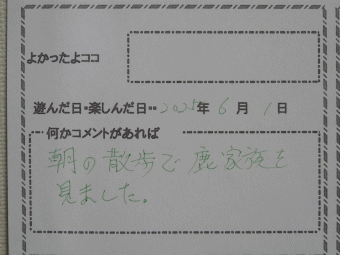 よかったよココ
遊んだ日・楽しんだ日・・ 2025年 6月 1日
何かコメントがあれば
朝の散歩で鹿家族を
見ました。